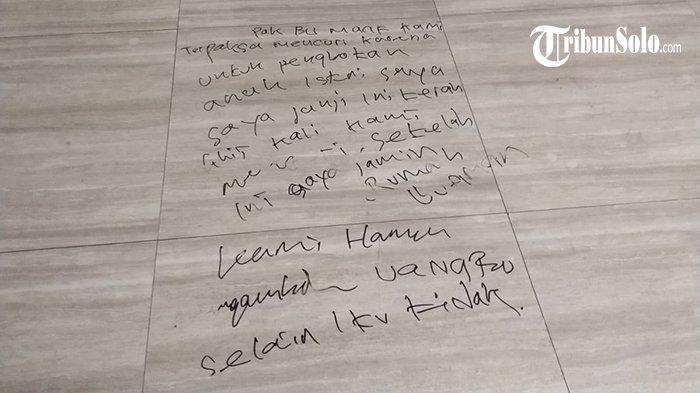 TribunSolo.com
Pak Bu maaf kami
Terpaksa mencuri karena
untuk pengbotan
anak istri saya
saya janji ini terah
kali kami
setelah
ini saya jamin
Ruma
kami Hanya
uangku
selain Itu tidak.